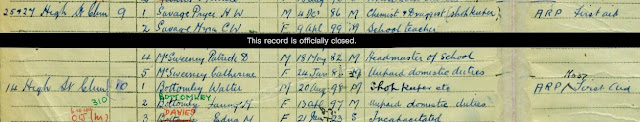 25&27 High St Clun 9 1 Savage Pryce H W M 4 Oct 86 M Chemist & Druggist (shopkeeper) ARP First aid
2 Savage Myra C W F 9 Sept 99 M School teacher
This record is officially closed.
4 McSweeney Patrick D M 18 May 82 M Headmaster of School
5 McSweeney Catherine F 24 Jan 83 M Unpaid domestic duties
14 High St Clun 10 1 Bottomley Walter M 20 Aug 98 M Shop keeper etc ARP First Aid
BOTTOMLEY
310
2 Bottomley F 13 97 M Unpaid domestic duties
DAVIES
3 Edna M F 21 S Incapacitated